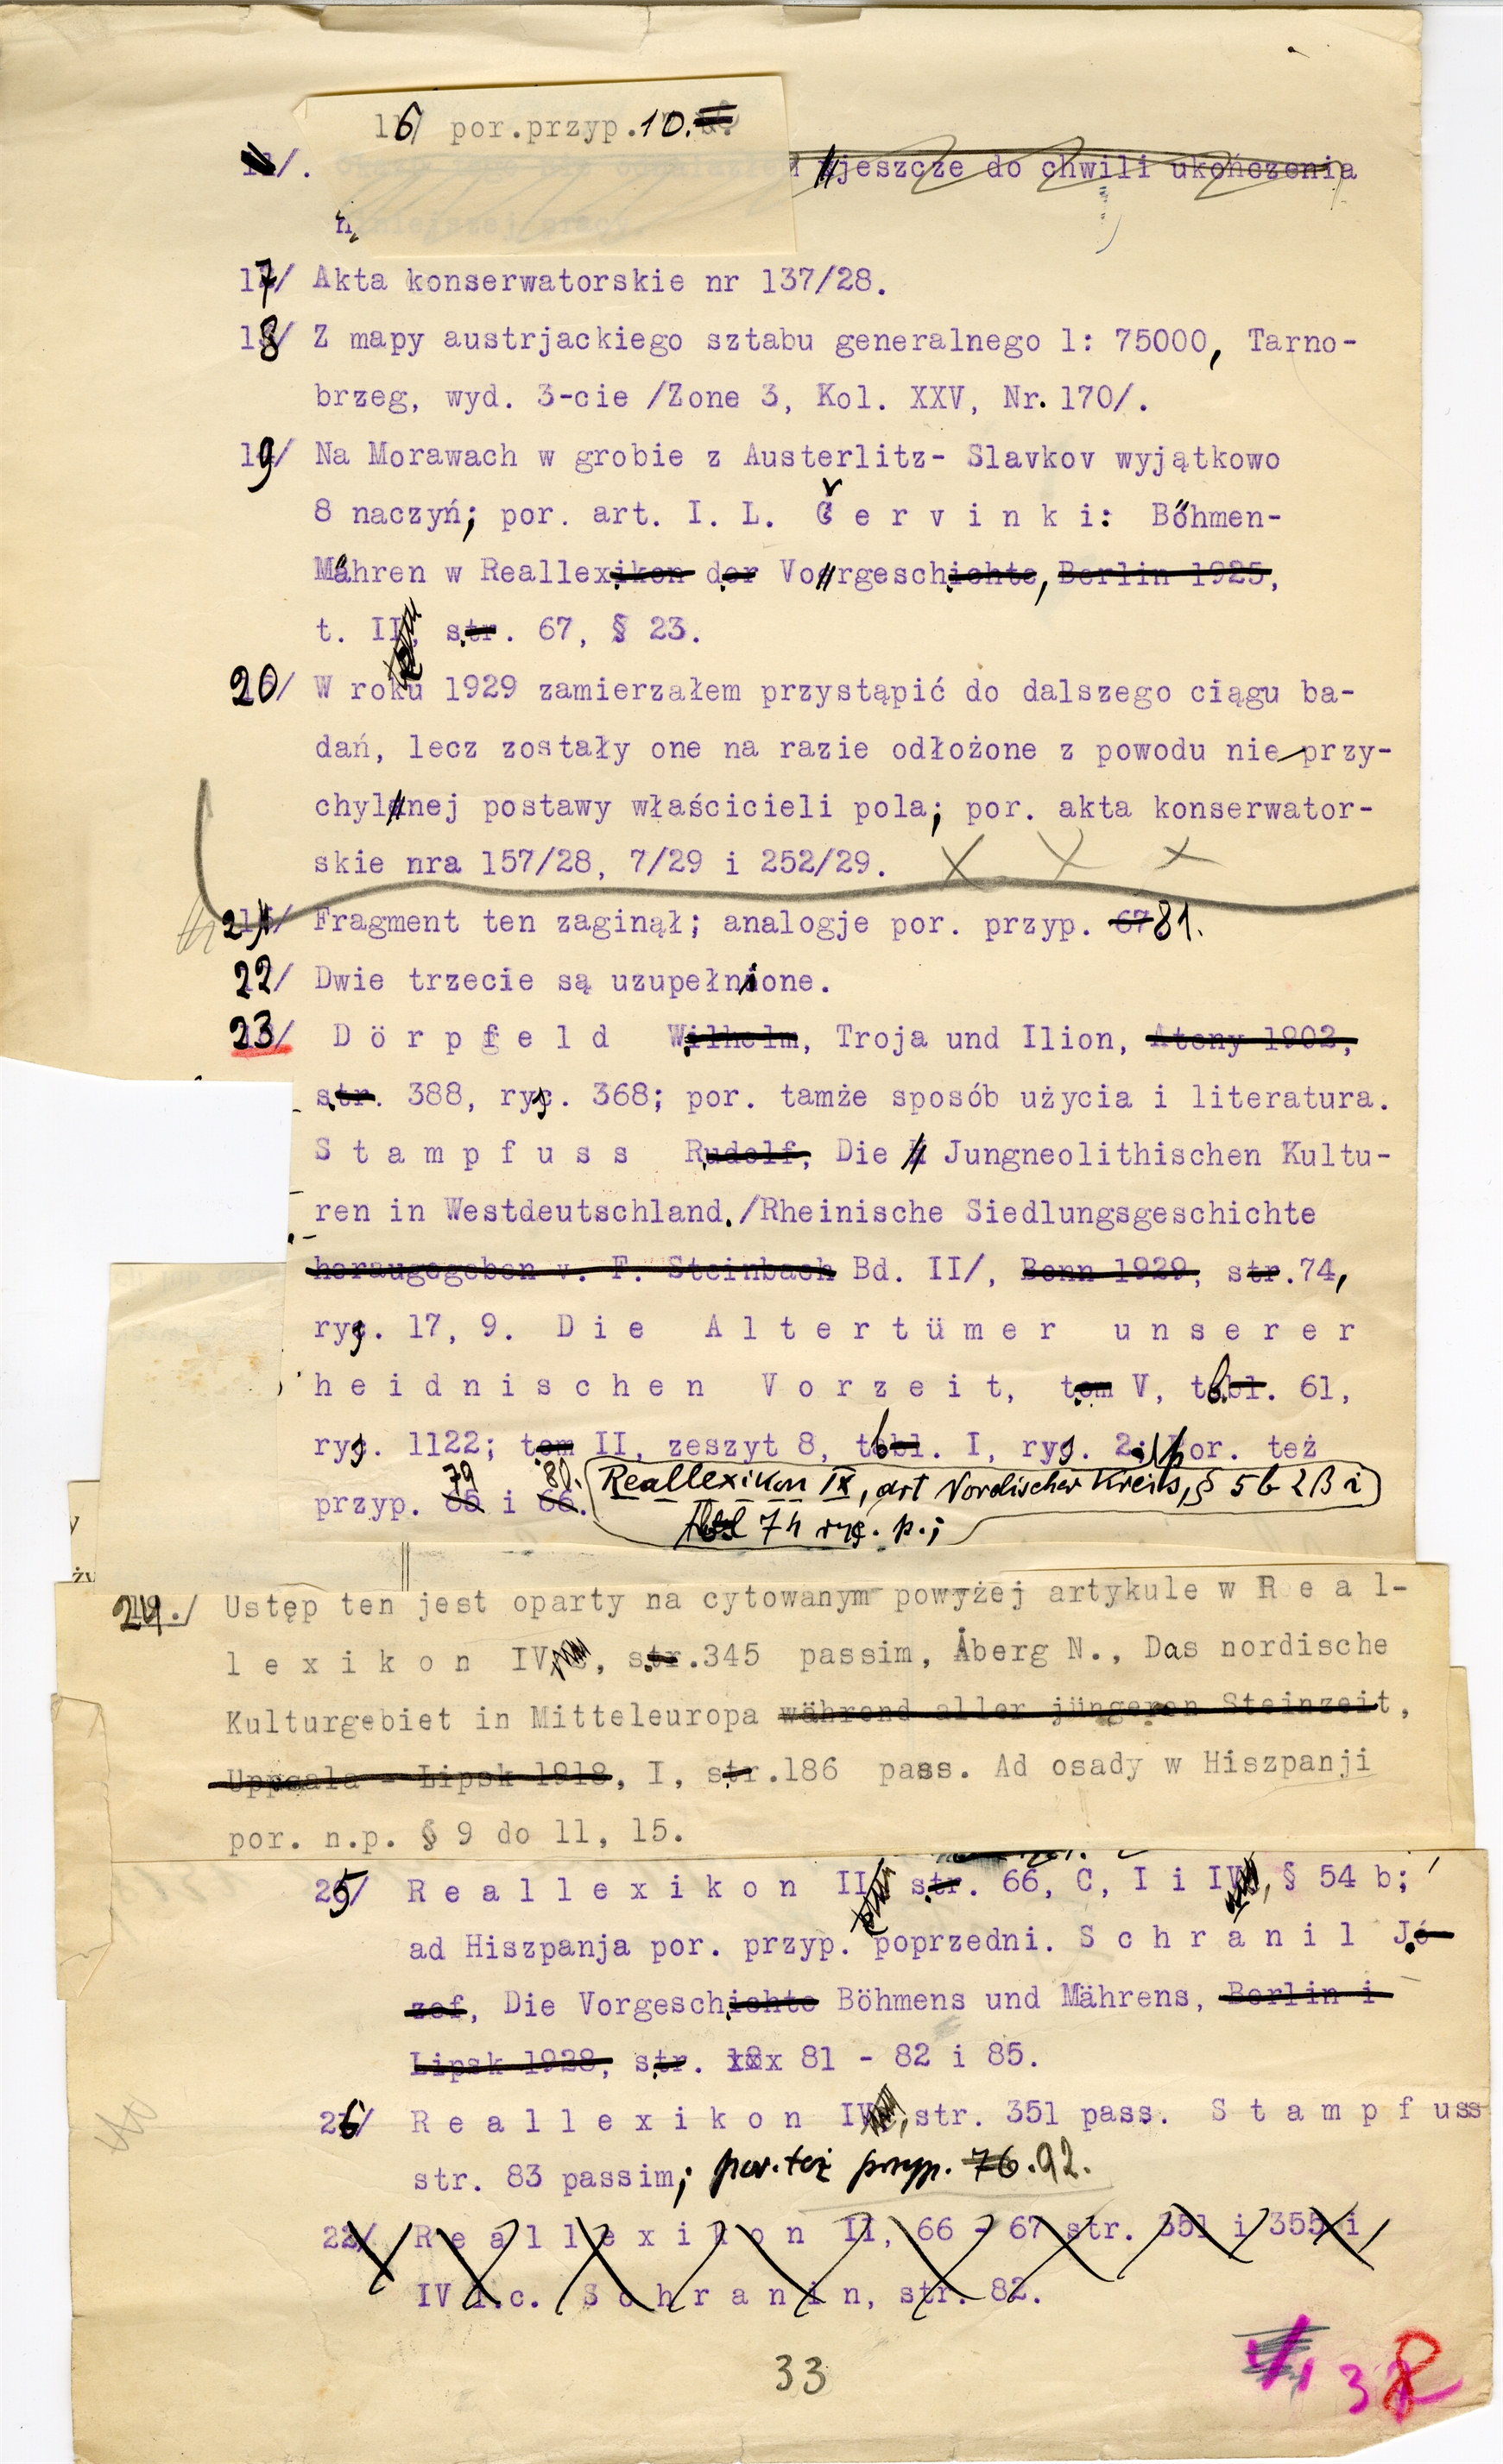 16/ por.przyp.10.
/. jeszcze do chwili ukończenia
niniejszej pracy.
17/ Akta konserwatorskie nr 137/28.
18/ Z mapy austrjackiego sztabu generalnego 1: 75000, Tarno-
brzeg, wyd. 3-cie /Zone 3, Kol. XXV, Nr. 170/.
19/ Na Morawach w grobie z Austerlitz- Slavkov wyjątkowo
8 naczyń; por. art. I. L. Č e r v i n k i: Böhmen-
Mähren w Reallexikon der Vorgeschichte, Berlin 1925,
t. II, str. 67, § 23.
20/ W roku 1929 zamierzałem przystąpić do dalszego ciągu ba-
dań, lecz zostały one na razie odłożone z powodu nieprzy-
chylnej postawy właścicieli pola; por. akta konserwator-
skie nra 157/28, 7/29 i 252/29. X X X
21/ Fragment ten zaginął; analogje por. przyp. 67 81.
22/ Dwie trzecie są uzupełnione.
23/ D ö r p f e l d Wilhelm, Troja und Ilion, Ateny 1902,
str. 388, ryc. 368; por. tamże sposób użycia i literatura.
S t a m p f u s s Rudolf, Die Jungneolithischen Kultu-
ren in Westdeutschland./Rheinische Siedlungsgeschichte
heraugegeben v. F. Steinbach Bd. II/, Bonn 1929, str.74,
ryc. 17, 9. D i e A l t e r t ü m e r u n s e r e r
h e i d n i s c h e n V o r z e i t, tom V, tabl. 61,
ryc. 1122; tom II, zeszyt 8, tabl. I, ryc. 2; por. też
79 80.
przyp. 65 i 66. Reallexikon IX, art Nordischer Kreis, § 5 b 2 β i
tabl 74 ryc. p.;
24./ Ustęp ten jest oparty na cytowanym powyżej artykule w R e a l-
l e x i k o n IV, str.345 passim, Åberg N., Das nordische
Kulturgebiet in Mitteleuropa während aller jüngeren Steinzeit,
Uppsala - Lipsk 1918, I, str.186 pass. Ad osady w Hiszpanji
por. n.p. § 9 do 11, 15.
25/ R e a l l e x i k o n II str. 66, C, I i IV, § 54 b;
ad Hiszpanja por. przyp. poprzedni. S c h r a n i l Jó-
zef, Die Vorgeschichte Böhmens und Mährens, Berlin i
Lipsk 1928, str. xxx 81 - 82 i 85.
26/ R e a l l e x i k o n IV, str. 351 pass. S t a m p f uss
str. 83 passim; por. też przyp. 76. 92.
22/ R e a l l e x i k o n II, 66 - 67 str. 351 i 355 i
IV l.c. S c h r a n i n, str. 82.
33
38